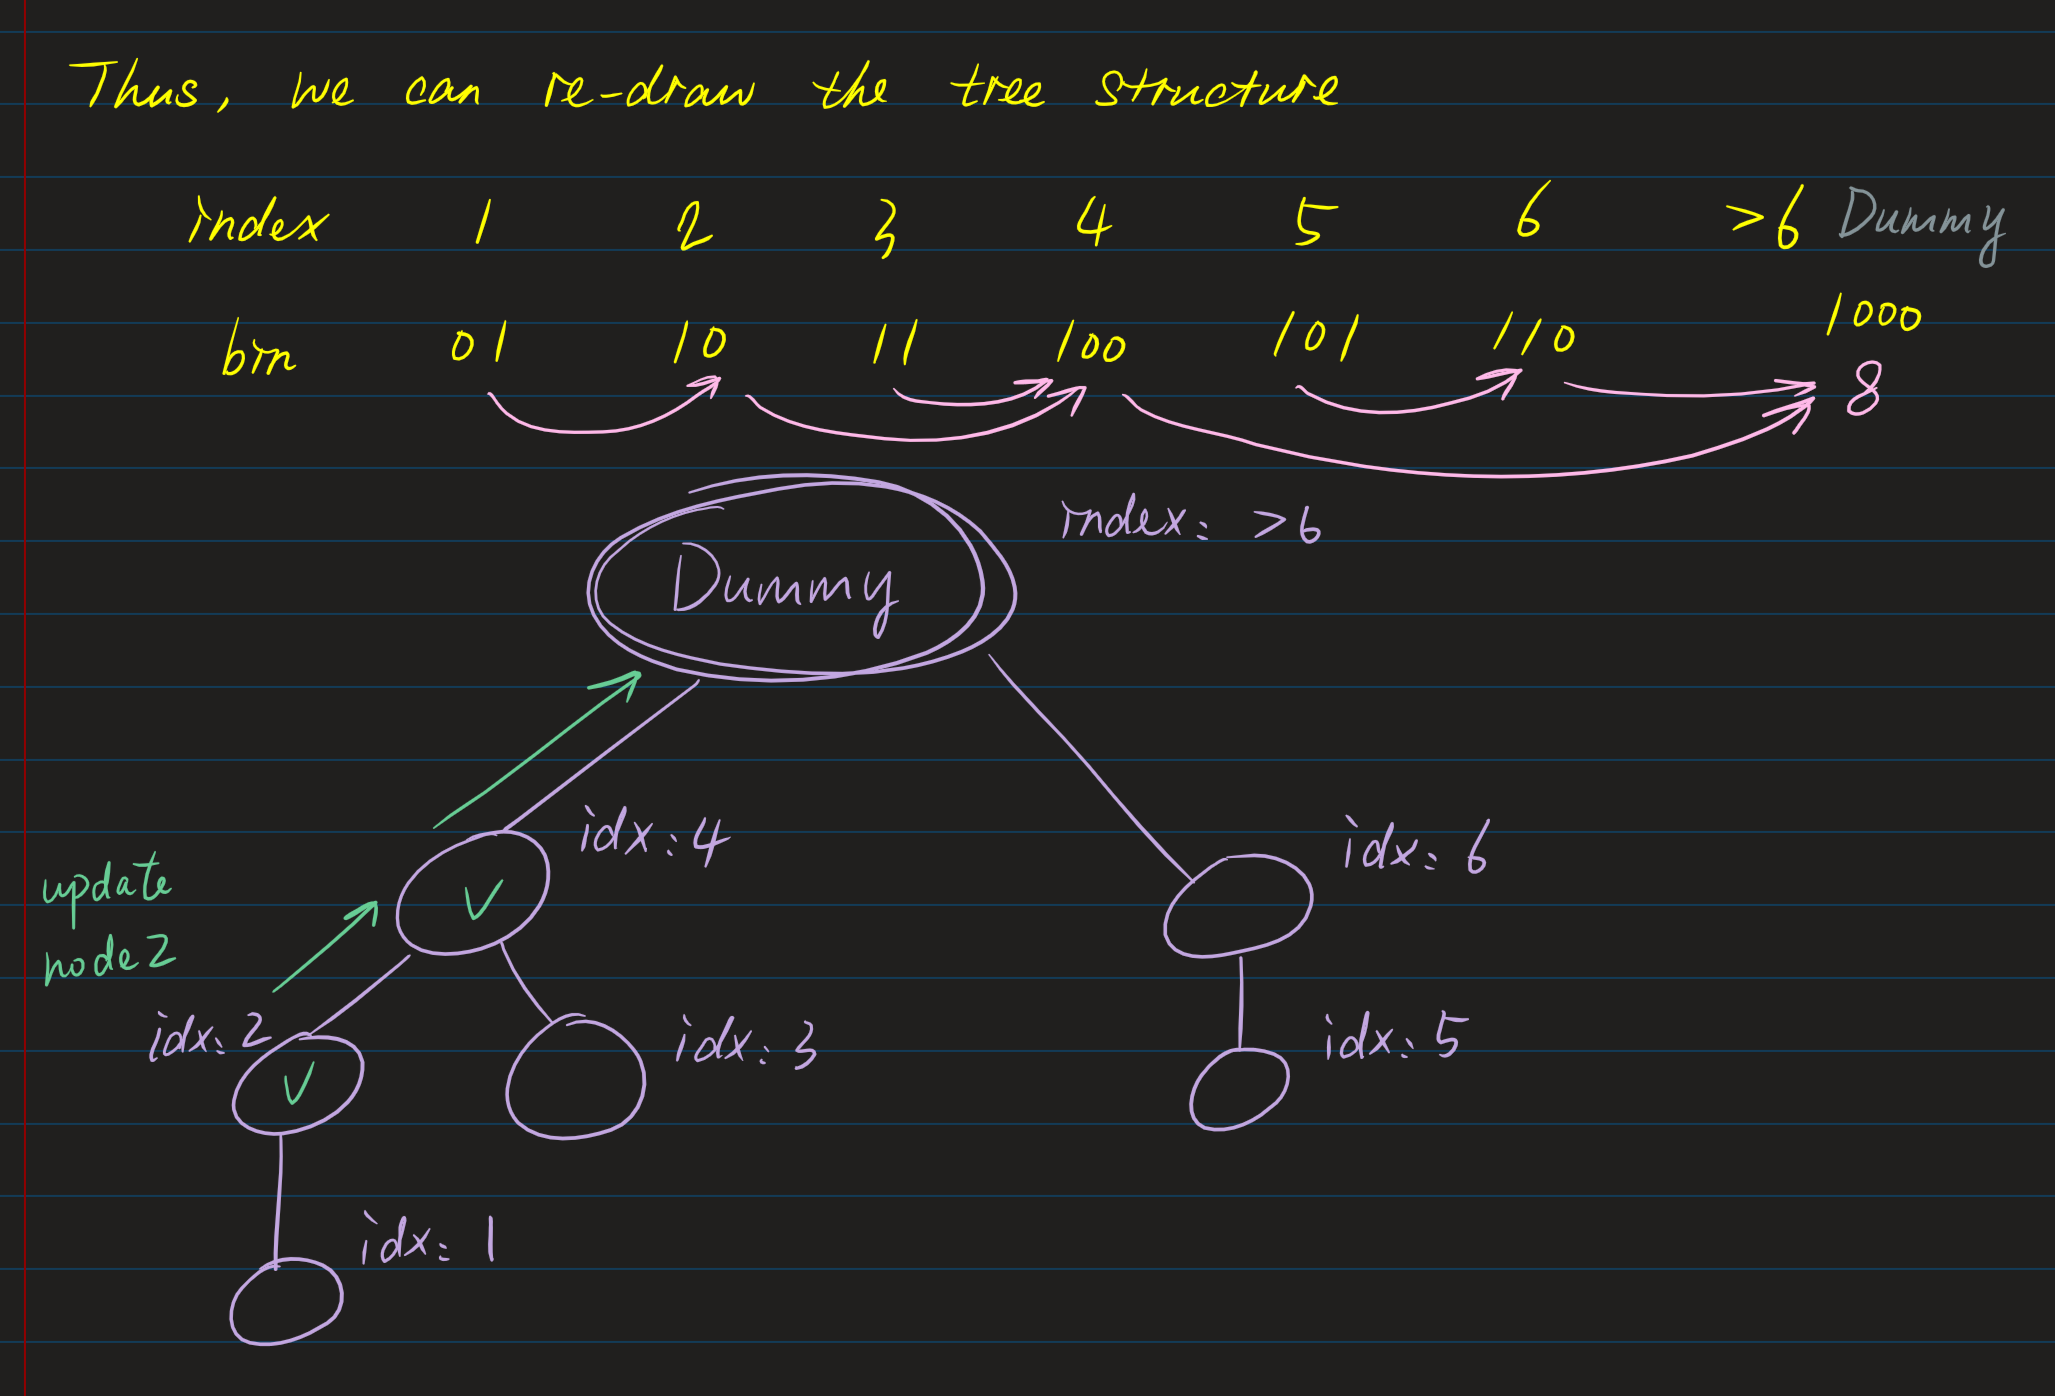 Thus, we can re-draw the tree structure
index 1 2 3 4 5 6 >6 Dummy
bin 01 10 11 100 101 110 1000
8
index: >6
Dummy
idx:4
idx: 6
update
node 2
idx: 2
idx: 3
idx: 5
idx: 1